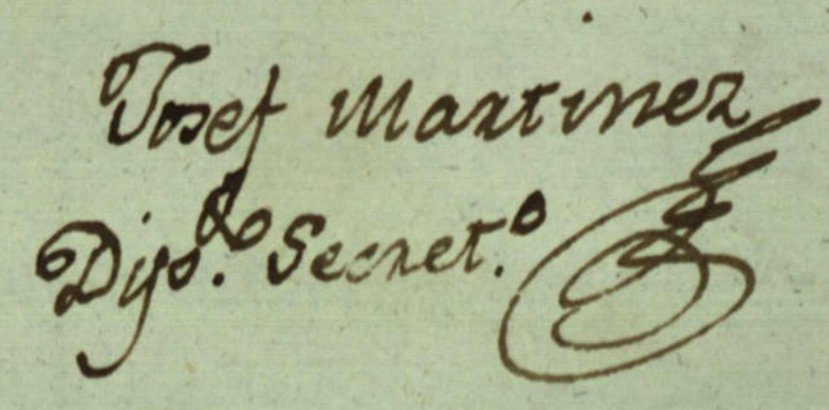 Josef Martinez
Dip.do Secret.o